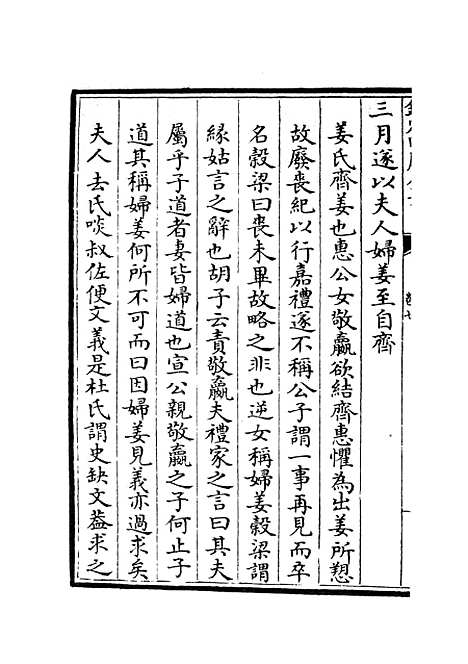 三月遂以夫人婦姜至自齊
姜氏齊姜也惠公女敬嬴欲結齊惠懼為出姜所愬
故廢喪紀以行嘉禮遂不稱公子謂一事再見而卒
名穀梁曰喪未畢故略之非也逆女稱婦姜穀梁謂
緣姑言之辭也胡子云責敬嬴夫禮家之言曰其夫
屬乎子道者妻皆婦道也宣公親敬嬴之子何止子
道其稱婦姜何所不可而曰因婦姜見義亦過求矣
夫人去氏啖叔佐便文義是杜氏謂史缺文葢求之